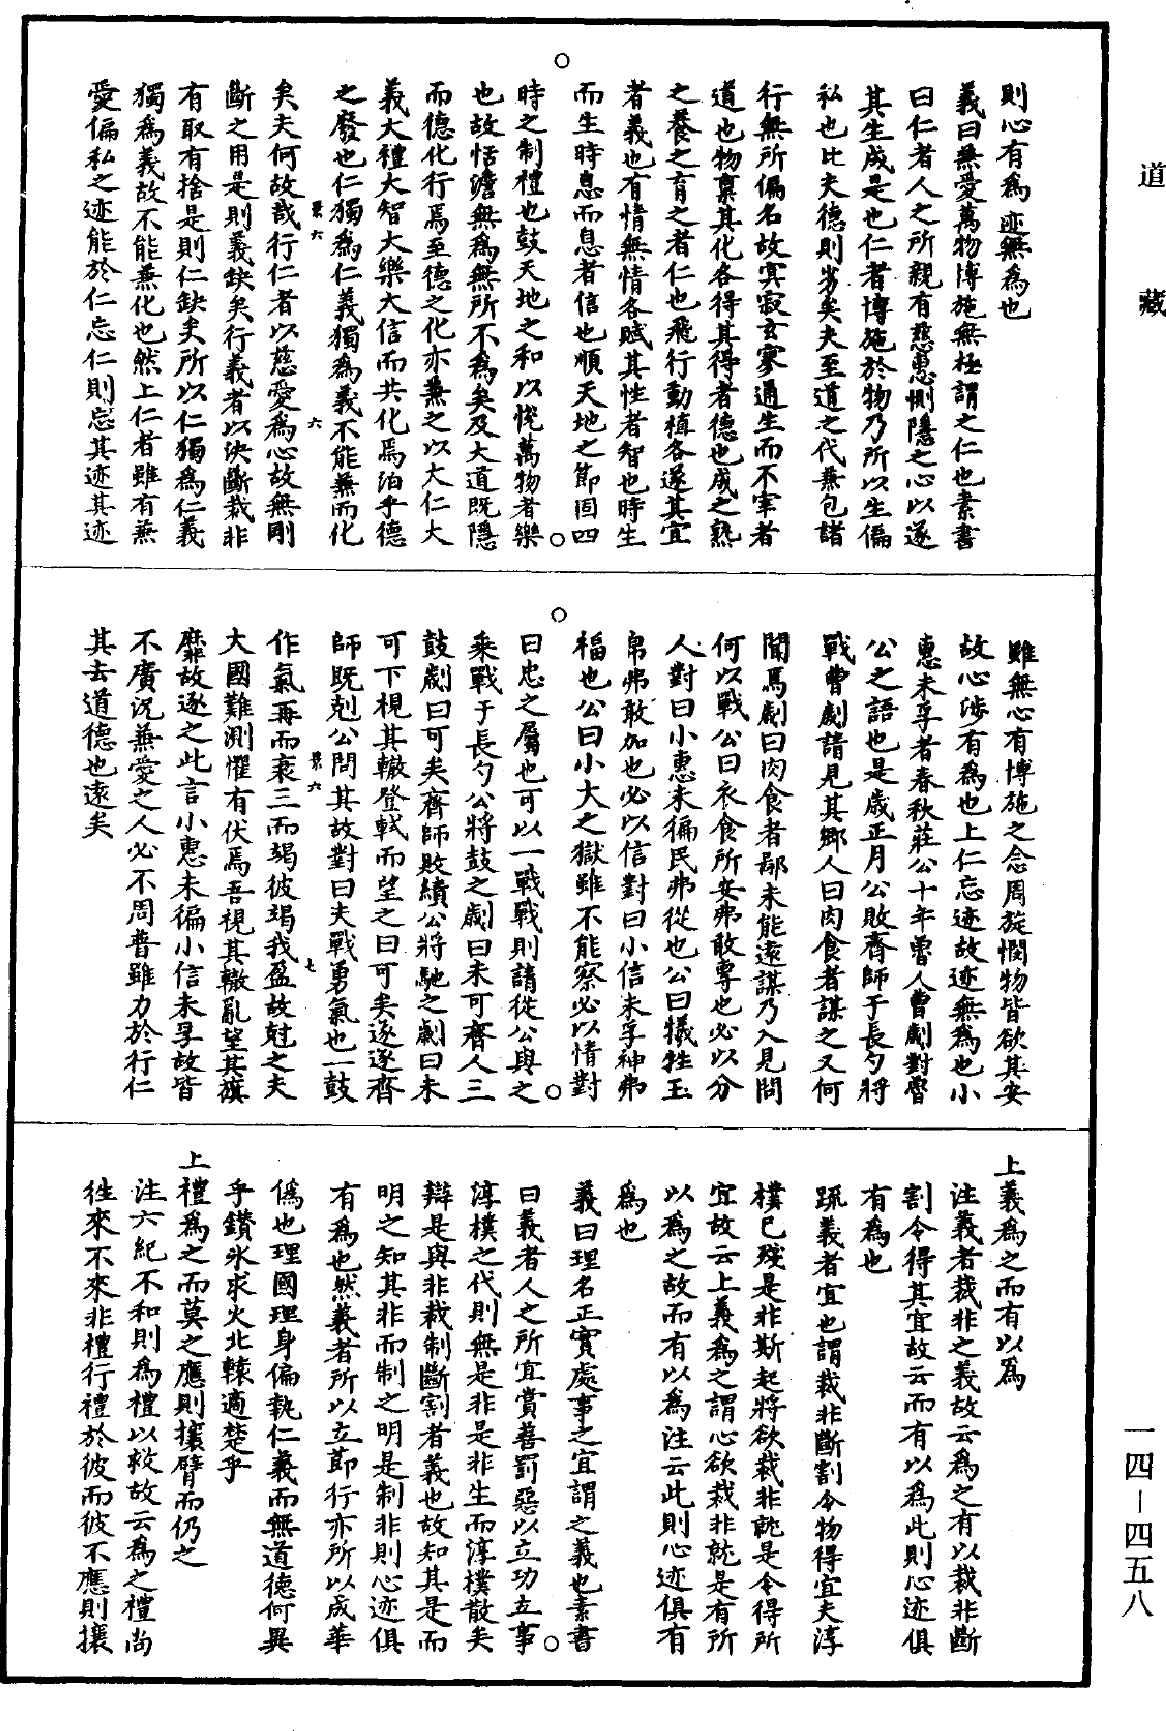 道藏
則心有爲迹無爲也
義曰無愛萬物博施無極謂之仁也素書
曰仁者人之所親有慈惠惻隱之心以遂
其生成是也仁者博施於物乃所以生偏
私也比夫德則劣矣夫至道之代兼包諸
行無所偏名故寂寥玄寥通生而不宰者
道也物禀其化各得其得者德也成之熟
之養之育之者仁也飛行動植各遂其宜
者義也有情無情各賦其性者智也時生
而生時息而息者信也順天地之節固四
時之制禮也鼓天地之和以悅萬物者樂
也故恬澹無爲無所不爲矣及大道既隱
而德化行焉至德之化亦兼之以大仁大
義大禮大智大樂大信而共化焉洎乎德
之廢也仁獨爲仁義獨爲義不能兼而化
景六 六
矣夫何故哉行仁者以慈愛爲心故無剛
斷之用是則義缺矣行義者以決斷裁非
有取有捨是則仁缺矣所以仁獨爲仁義
獨爲義故不能兼化也然上仁者雖有兼
愛偏私之迹能於仁忘仁則忘其迹其迹
雖無心有博施之念周旋憫物皆欲其安
故心涉有爲也上仁忘迹故迹無爲也小
惠未孚者春秋莊公十年魯人曹劌對魯
公之語也是歲正月公敗齊師于長勺將
戰曹劌請見其鄉人曰肉食者謀之又何
閒焉劌曰肉食者鄙未能遠謀乃入見問
何以戰公曰衣食所安弗敢專也必以分
人對曰小惠未徧民弗從也公曰犧牲玉
帛弗敢加也必以信對曰小信未孚神弗
福也公曰小大之獄雖不能察必以情對
曰忠之屬也可以一戰戰則請從公與之
乘戰于長勺公將鼓之劌曰未可齊人三
鼓劌曰可矣齊師敗績公將馳之劌曰未
可下視其轍登軾而望之曰可矣遂逐齊
師既剋公問其故對曰夫戰勇氣也一鼓
景六 七
作氣再而衰三而竭彼竭我盈故尅之夫
大國難測懼有伏焉吾視其轍亂望其旗
靡故逐之此言小惠未徧小信未孚故皆
不廣況兼愛之人必不周普雖力於行仁
其去道德也遠矣
上義爲之而有以爲
注義者裁非之義故云爲之有以裁非斷
割令得其宜故云而有以爲此則心迹俱
有爲也
疏義者宜也謂裁非斷割令物得宜夫淳
樸已殘是非斯起將欲裁非就是令得所
宜故云上義爲之謂心欲裁非就是有所
以爲之故而有以爲注云此則心迹俱有
爲也
義曰理名正實處事之宜謂之義也素書
曰義者人之所宜賞善罰惡以立功立事
淳樸之代則無是非是非生而淳樸散矣
辯是與非裁制斷割者義也故知其是而
明之知其非而制之明是制非則心迹俱
有爲也然義者所以立節行亦所以成華
僞也理國理身偏執仁義而無道德何異
乎鑽氷求火北轅適楚乎
上禮爲之而莫之應則攘臂而仍之
注六紀不和則爲禮以救故云爲之禮尚
徃來不來非禮行禮於彼而彼不應則攘
一四—四五八